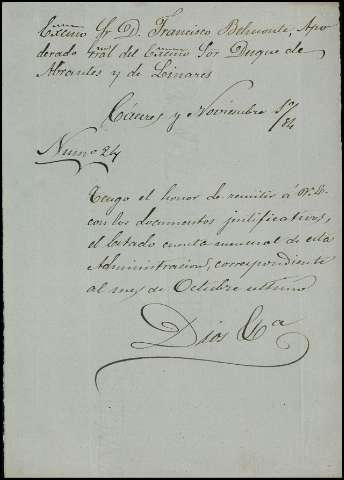 Excmo Sr D. Francisco Belmonte, Apo
derado Gral del Excmo Sor Duque de
Abrantes y de Linares
Cáceres y Noviembre 1º/84
Numo 24
Tengo el honor de remitir á V. E.
con los documentos justificativos,
el Estado cuenta mensual de esta
Administracion, correspondiente
al mes de Octubre ultimo
Dios Ga